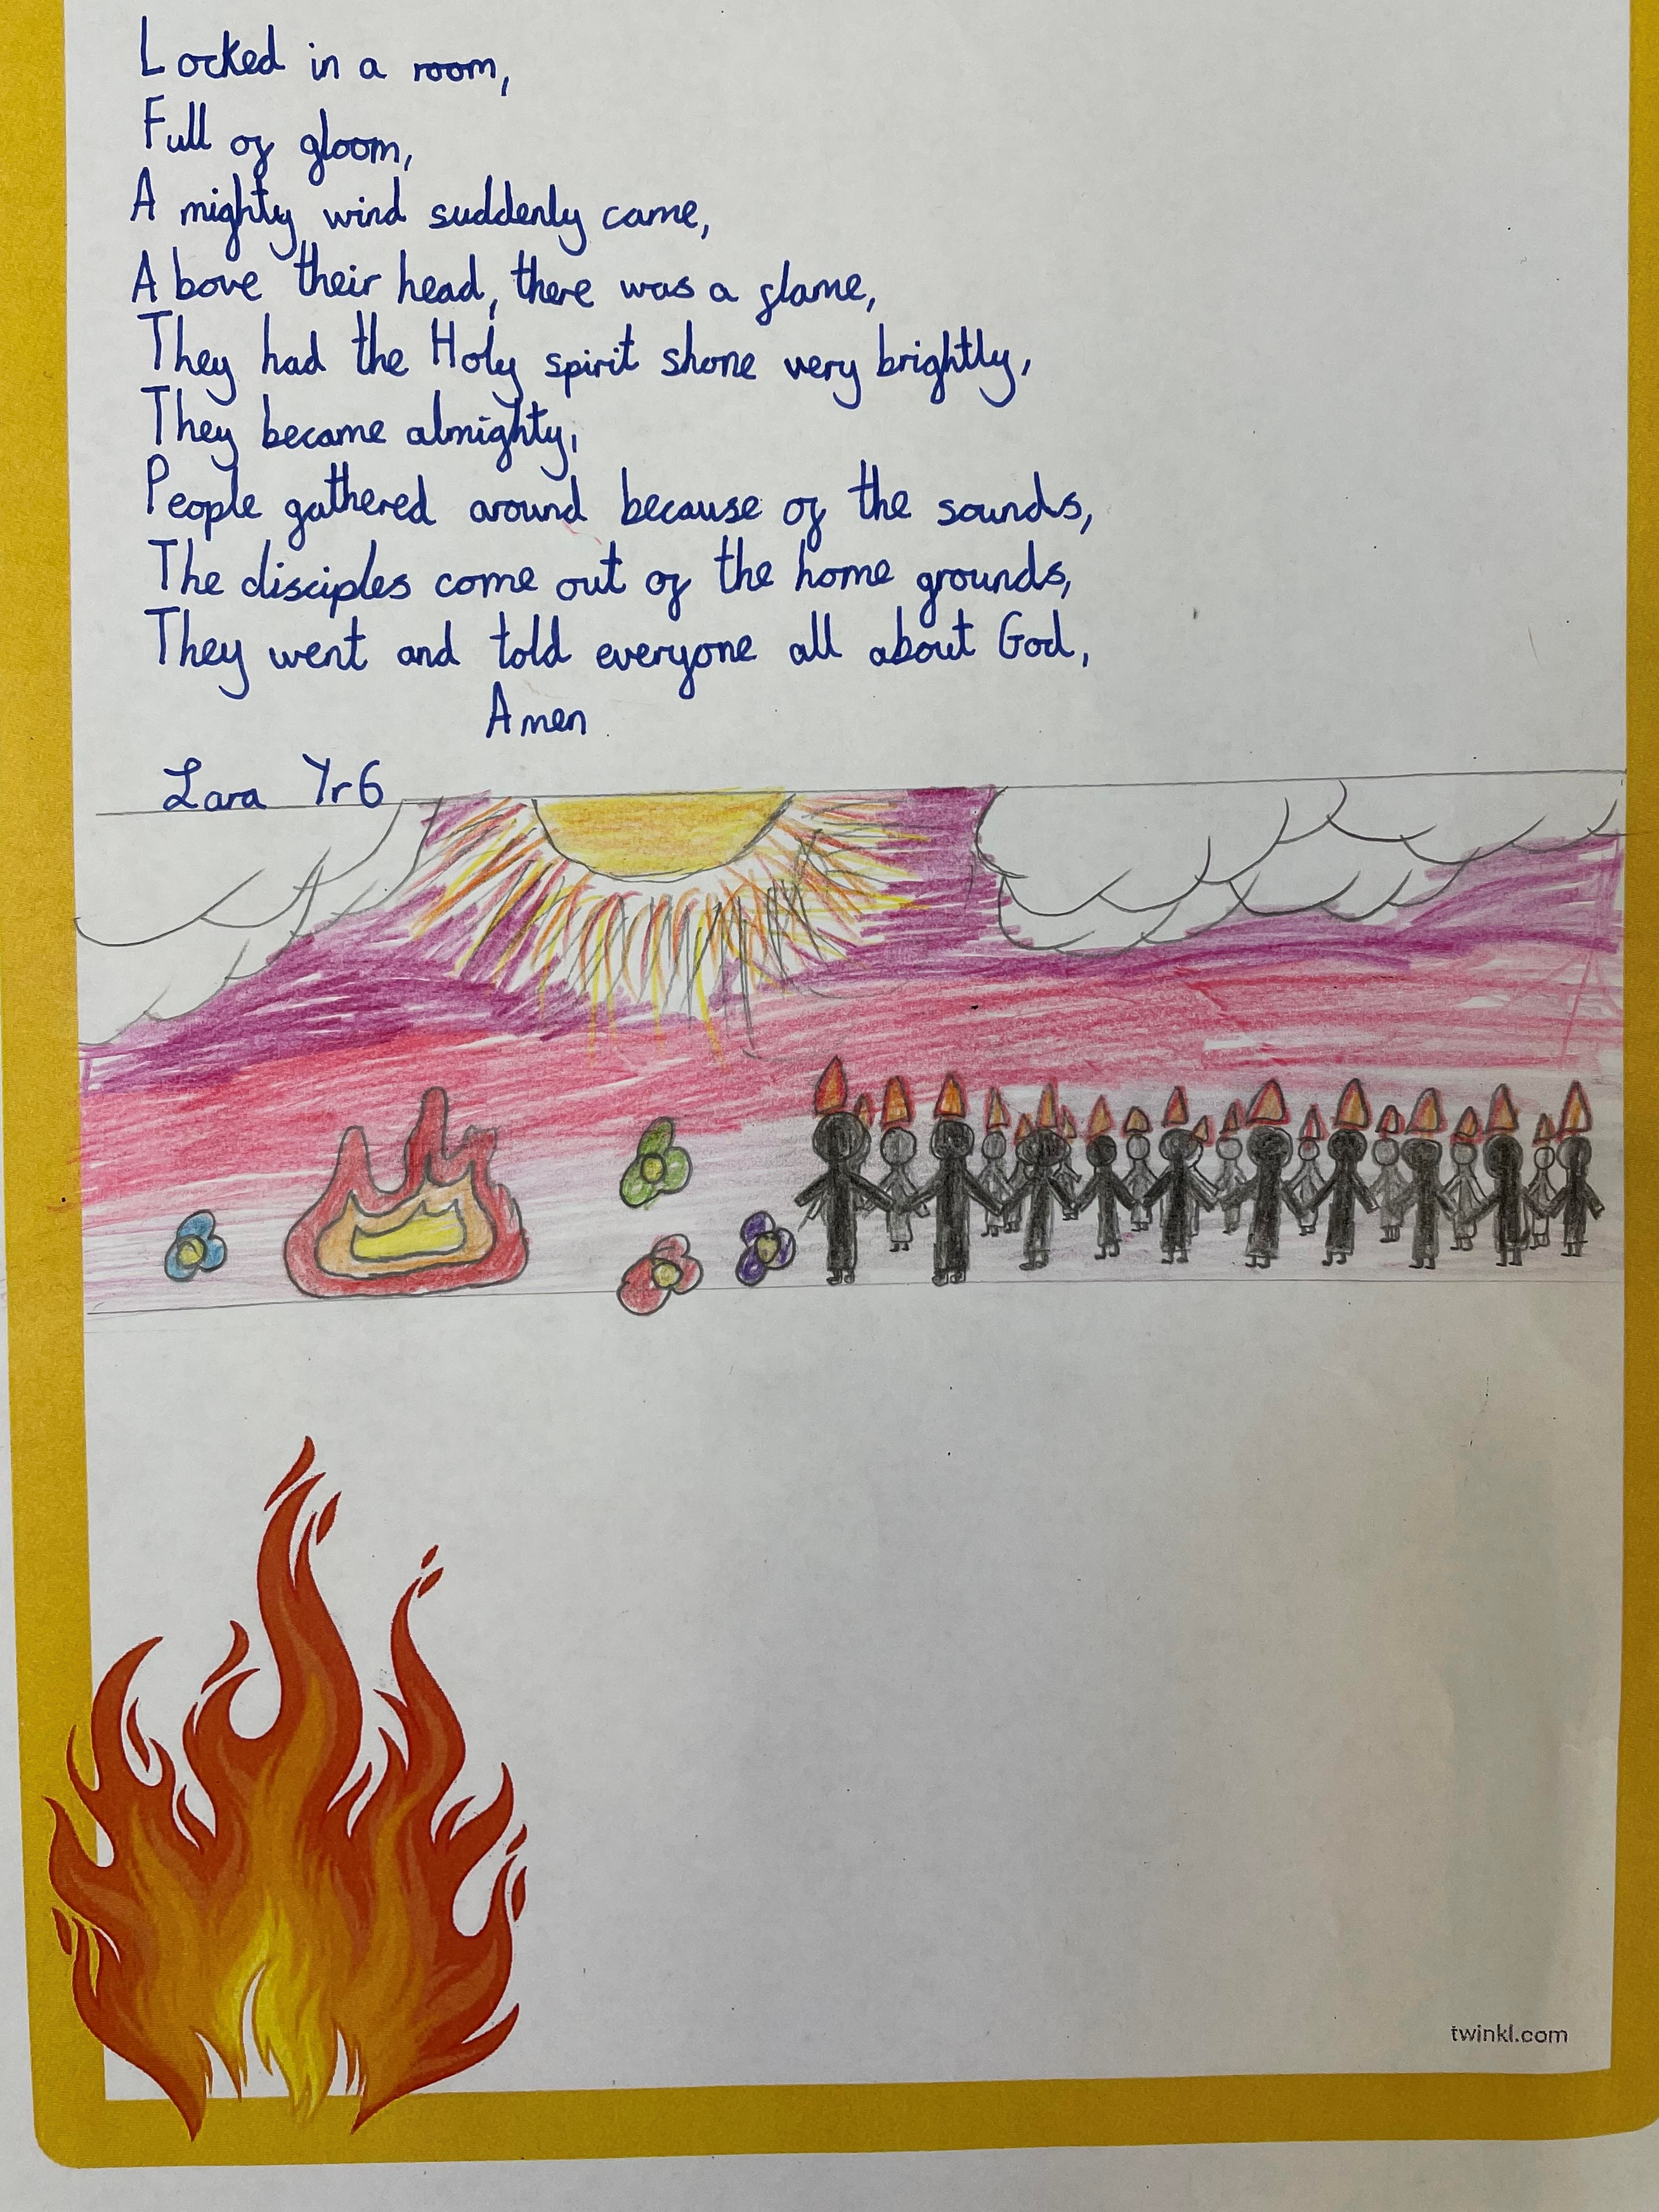 Locked in a room,
Full of gloom,
A mighty wind suddenly came,
Above their head, there was a flame,
They had the Holy spirit shone very brightly,
They became almighty,
People gathered around because of the sounds,
The disciples come out of the home grounds,
They went and told everyone all about God,
Amen
Lara Yr6
twinkl.com